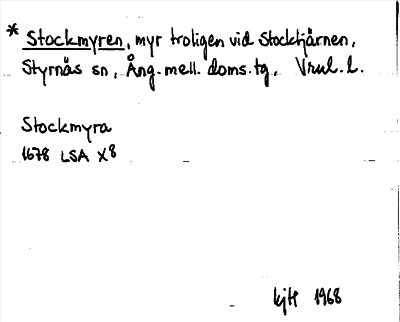 * Stockmyren, myr troligen vid Stocktjärnen,
Styrnäs sn, Ång. mell. doms. tg, Vrul. l.
Stockmyra
1678 LSA X8
1968